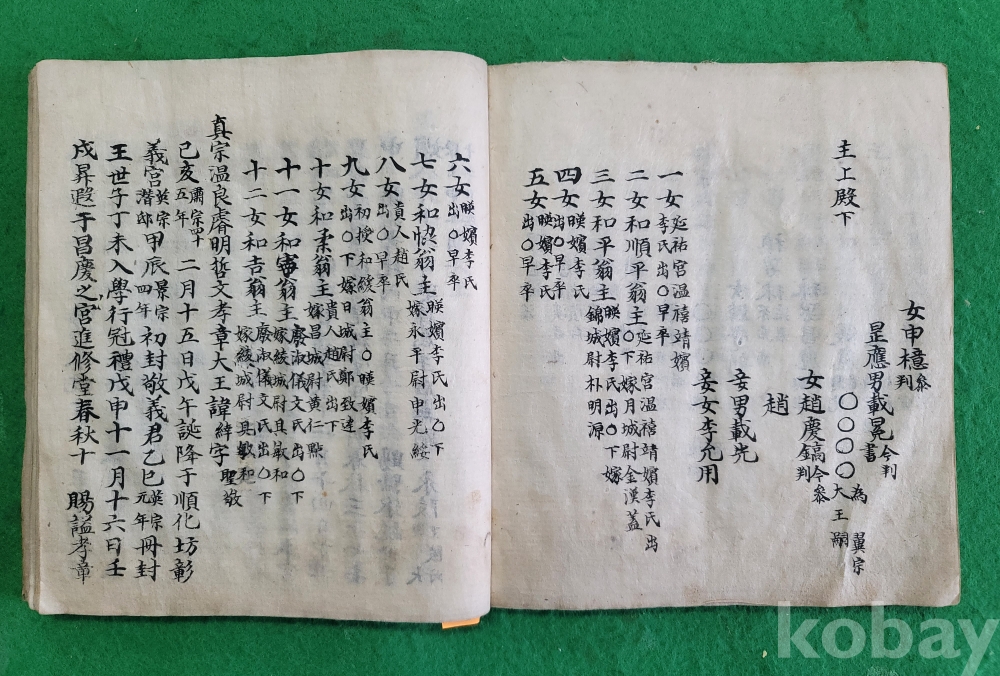 女申檍參判
是應男載冕今判書
〇〇〇〇為翼宗大王嗣
主上殿下
女趙慶鎬今參判
趙
妾男載先
妾女李允用
一女延祐宮溫禧靖嬪李氏出〇早卒
二女和順翁主延祐宮溫禧靖嬪李氏出〇下嫁月城尉金漢藎
三女和平翁主暎嬪李氏出〇下嫁錦城尉朴明源
四女暎嬪李氏出〇早卒
五女暎嬪李氏出〇早卒
六女暎嬪李氏出〇早卒
七女和恊翁主暎嬪李氏出〇下嫁永平尉申光綏
八女貴人趙氏出〇早卒
九女初授和緩翁主〇暎嬪李氏出〇下嫁日城尉鄭致達
十女和柔翁主貴人趙氏出〇下嫁昌城尉黃仁點
十一女和寧翁主廢淑儀文氏出〇下嫁綾城尉具敏和
十二女和吉翁主廢淑儀文氏出〇下嫁綾城尉具敏和
真宗溫良睿明哲文孝章大王諱緈字聖敬
己亥肅宗四十五年二月十五日戊午誕降于順化坊彰
義宮英宗潛邸甲辰景宗四年初封敬義君乙巳英宗元年冊封
王世子丁未入學行冠禮戊申十一月十六日壬
戌昇遐于昌慶之宮進修堂春秋十 賜謚孝章
kobay